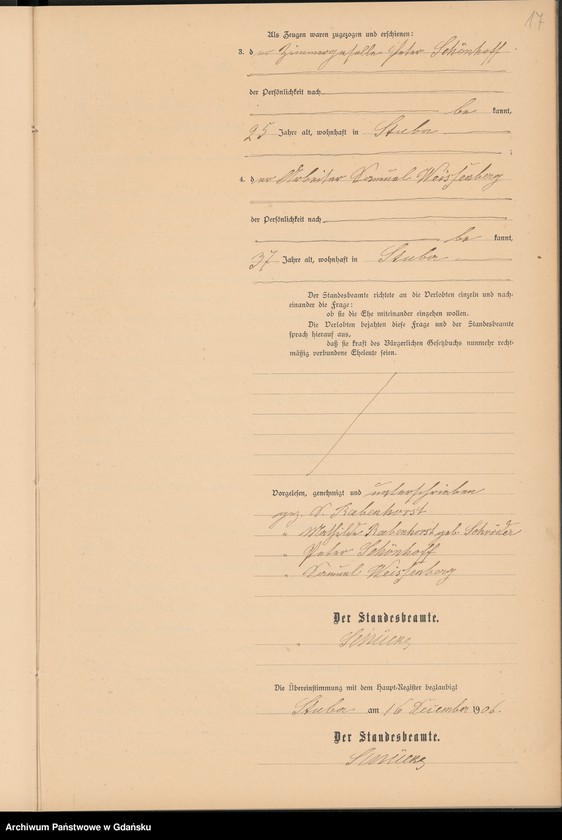 17
Als Zeugen waren zugezogen und erschienen:
3. der Zimmergeselle Peter Schönhoff
der Persönlichkeit nach
be kannt,
25 Jahre alt, wohnhaft in Stuba
;
4. der Arbeiter Samuel Weissenberg
der Persönlichkeit nach
be kannt,
37 Jahre alt, wohnhaft in Stuba
Der Standesbeamte richtete an die Verlobten einzeln und nach-
einander die Frage:
ob sie die Ehe miteinander eingehen wollen.
Die Verlobten bejahten diese Frage und der Standesbeamte
sprach hierauf aus,
daß sie kraft des Bürgerlichen Gesetzbuchs nunmehr recht-
mäßig verbundene Eheleute seien.
Vorgelesen, genehmigt und unterschrieben
gez. S. Rabenhorst
" Mathilde Rabenhorst geb. Schröder
" Peter Schönhoff
" Samuel Weissenberg
Der Standesbeamte.
Die Übereinstimmung mit dem Haupt-Register beglaubigt
Stuba am 16 Dezember 1906.
Der Standesbeamte.
Archiwum Państwowe w Gdańsku